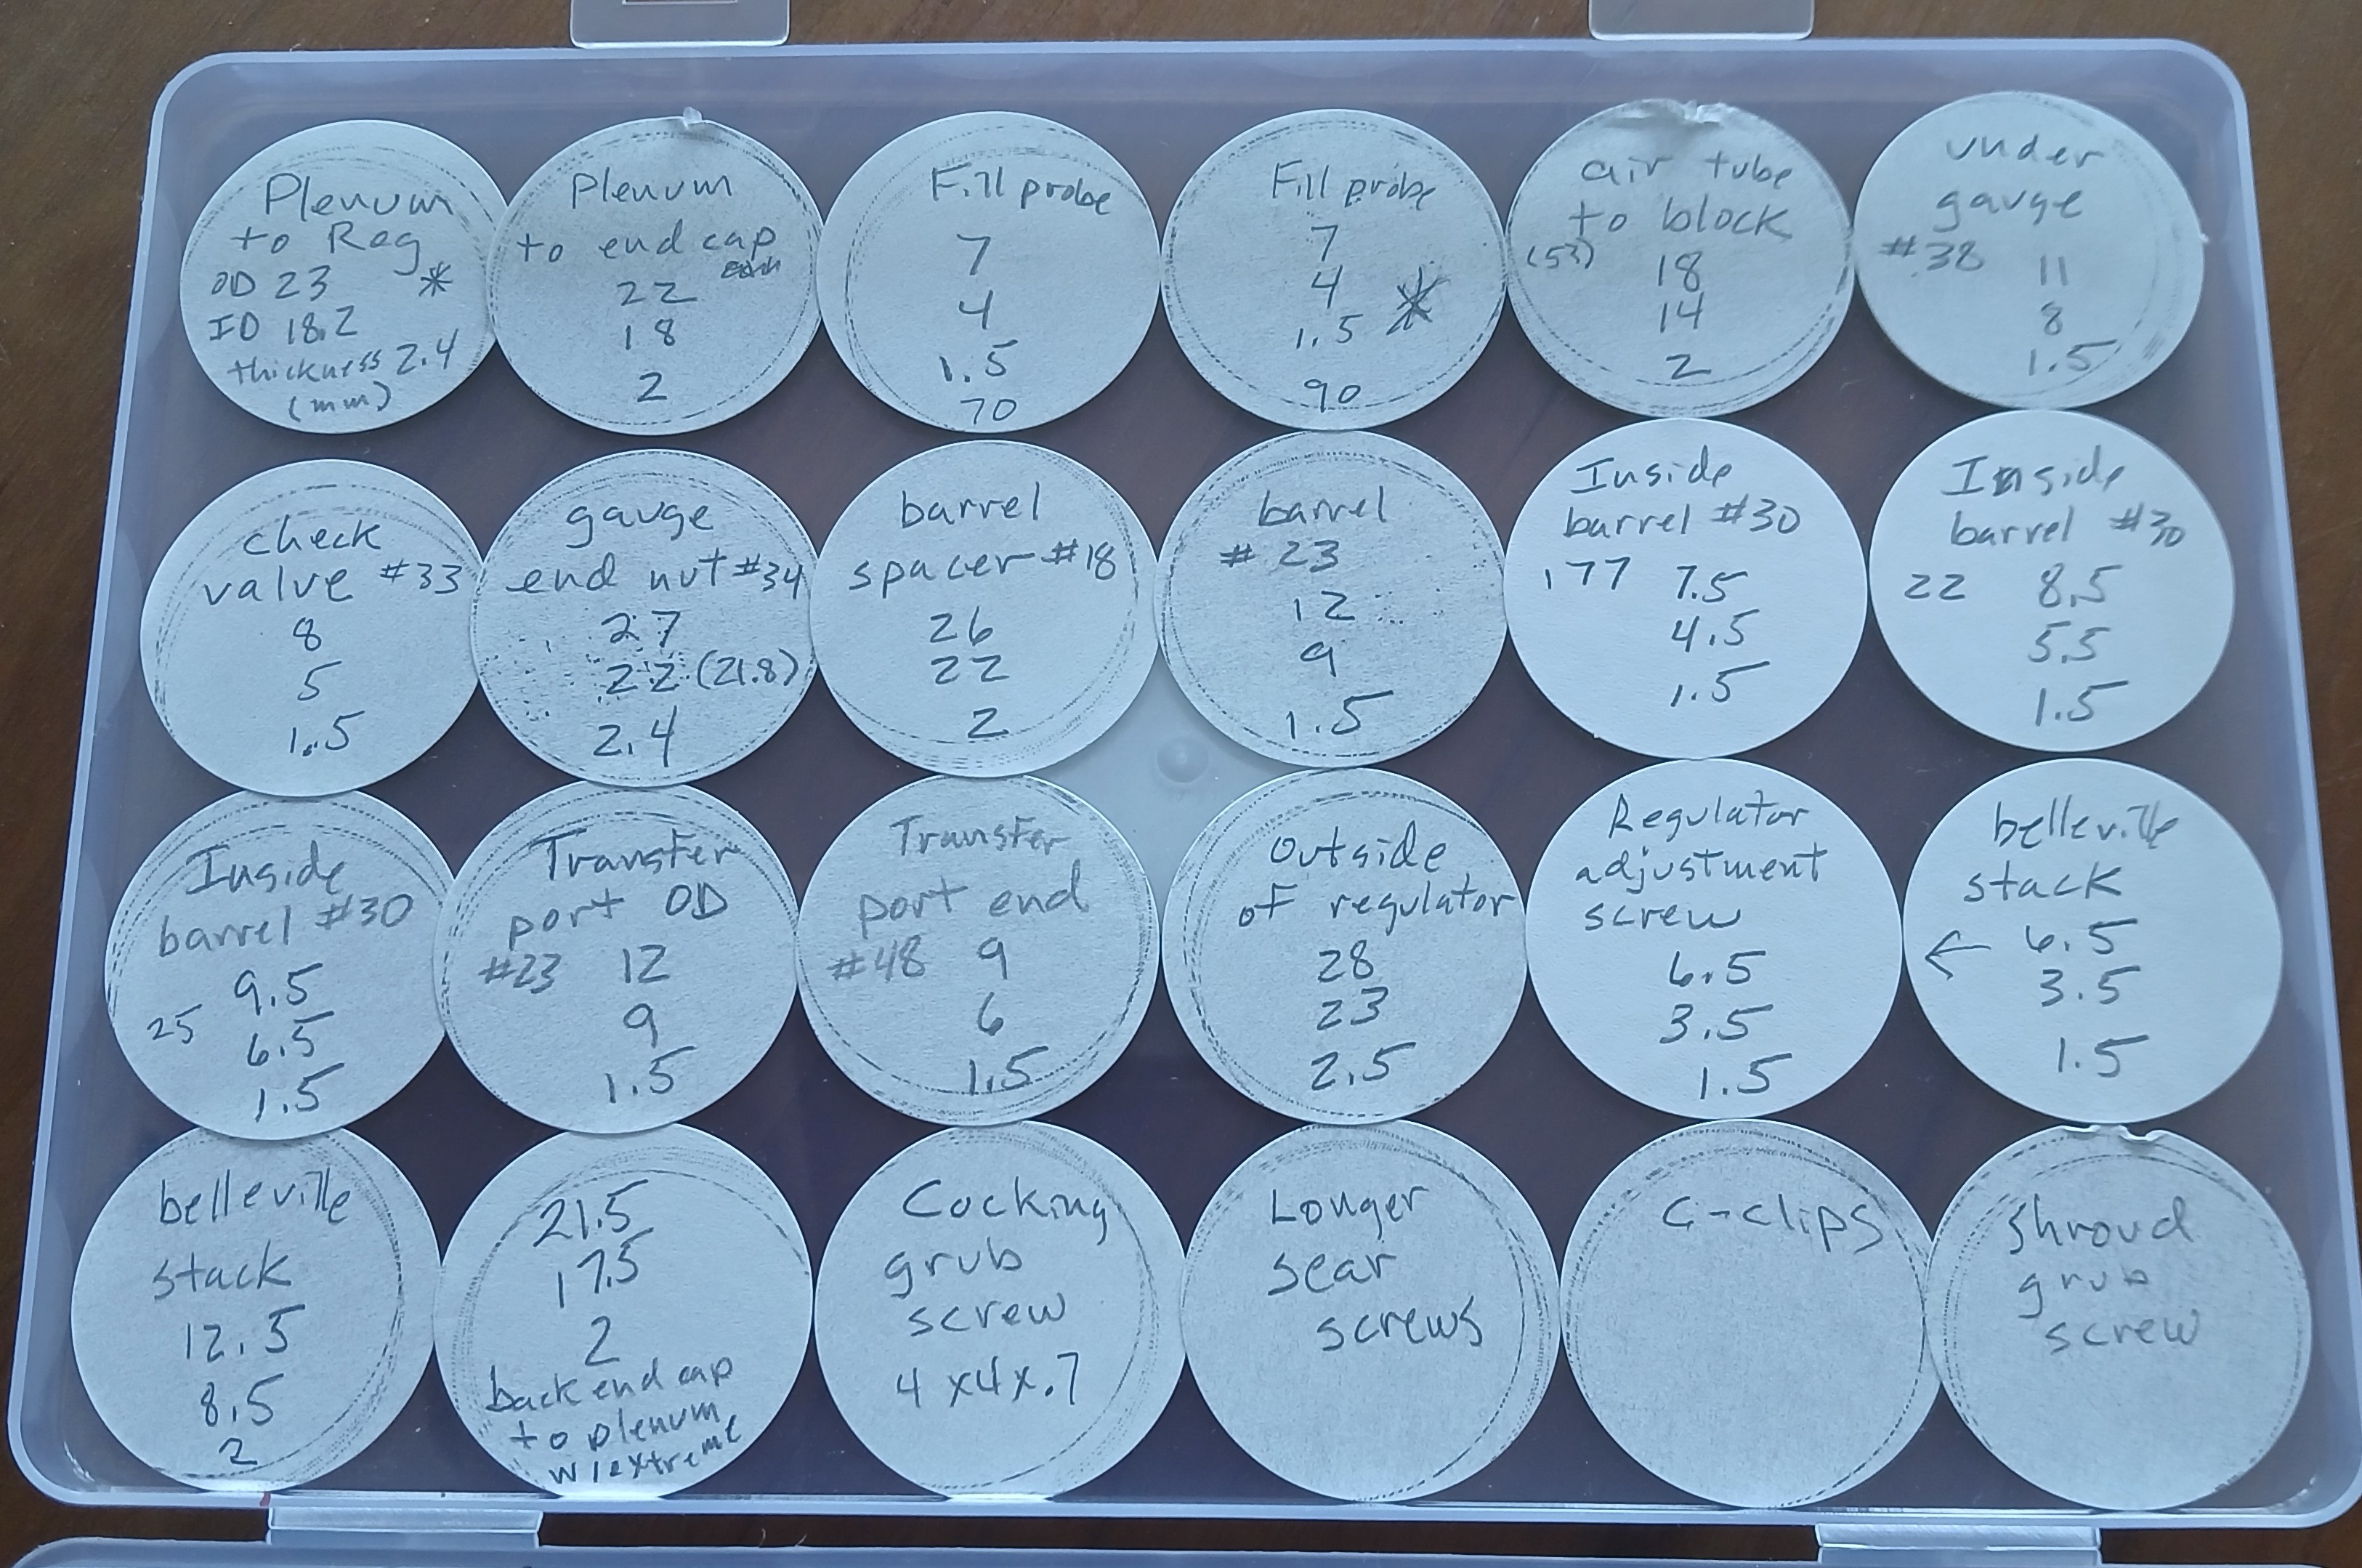 Plenum
to Reg
OD 23 *
ID 18.2
thickness 2.4
(mm)
Plenum
to end cap
22
18
2
Fill probe
7
4
1.5
70
Fill probe
7
4
1.5 *
90
air tube
to block
(53) 18
14
2
under
gauge
#38 11
8
1.5
check
valve #33
8
5
1.5
gauge
end nut #34
27
22 (21.8)
2.4
barrel
spacer #18
26
22
2
barrel
# 23
12
9
1.5
Inside
barrel #30
177 7.5
4.5
1.5
Inside
barrel #30
22 8.5
5.5
1.5
Inside
barrel #30
9.5
25 6.5
1.5
Transfer
port OD
#23 12
9
1.5
Transfer
port end
#48 9
6
1.5
Outside
of regulator
28
23
2.5
Regulator
adjustment
screw
6.5
3.5
1.5
belleville
stack
← 6.5
3.5
1.5
belleville
stack
12.5
8.5
2
21.5
17.5
2
back end cap
to plenum
w/extreme
Cocking
grub
screw
4x4x.7
Longer
sear
screws
C-clips
Shroud
grub
screw